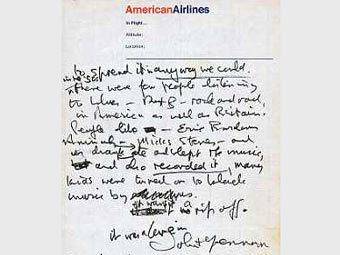 AmericanAirlines
In Flight...
Altitude:
Location:
to spread it anyway we could.
there were few people listening
to blues - R & B - rock and roll,
in America as well as Britain.
People like Eric Burdons
Animals Micks Stones - and
us drank ate and slept the music,
and also recorded it, many
kids were turned on to black
music by us.
it wasn't a rip off.
it was a love in
John Lennon